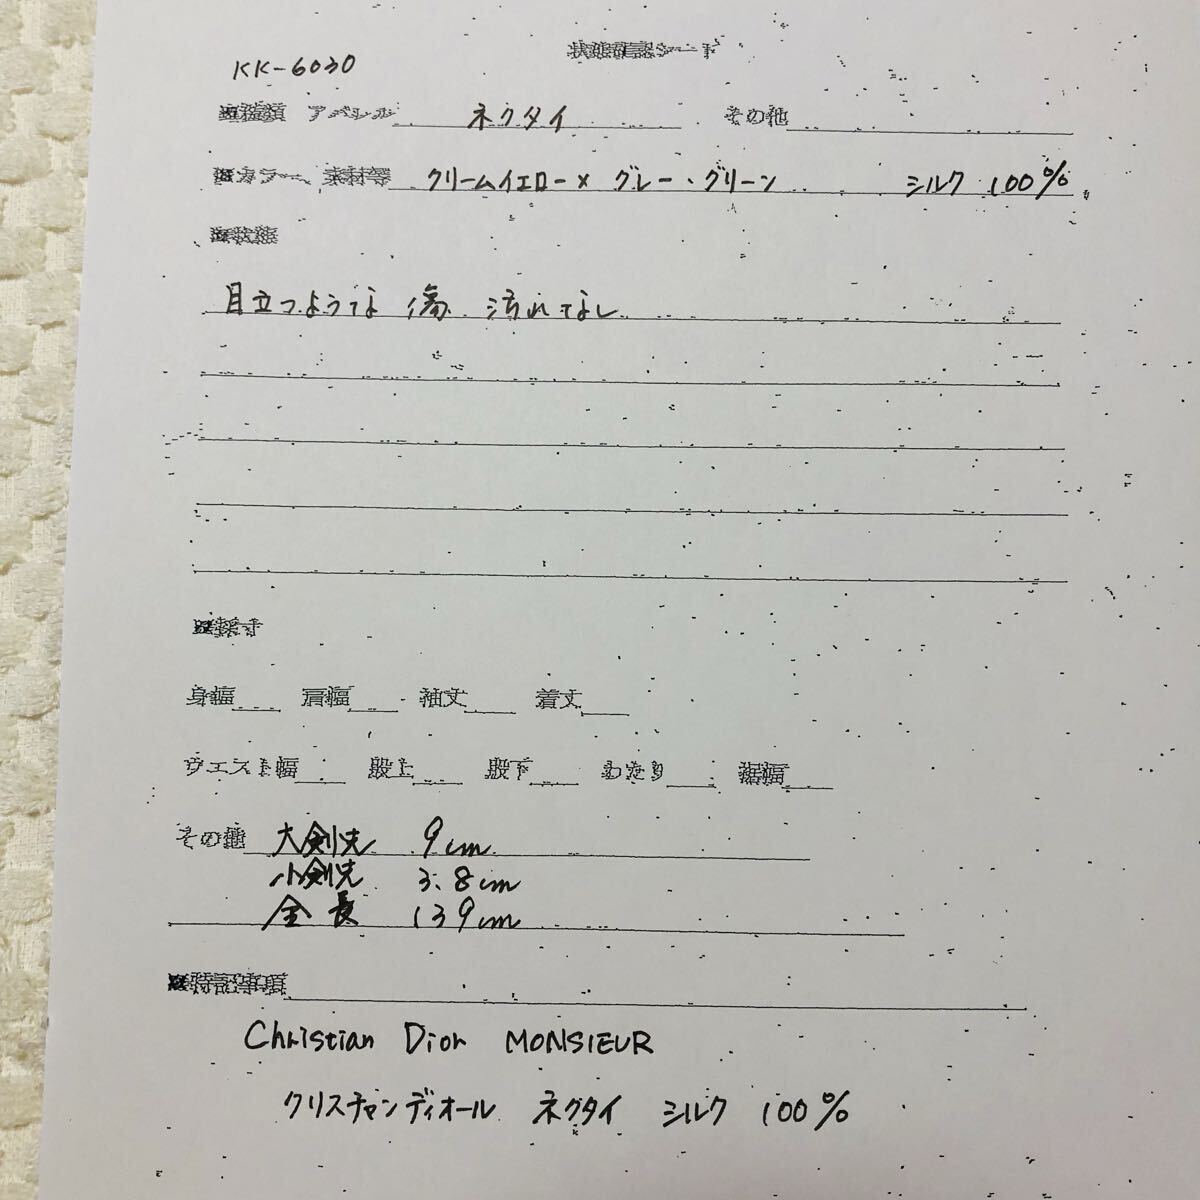 状態確認シート
KK-6030
■種類 アパレル ネクタイ その他
■カラー、素材等 クリームイエロー× グレー・グリーン シルク 100%
■状態
目立つような 傷 汚れなし
■採寸
身幅 肩幅 袖丈 着丈
ウエスト幅 股上 股下 わたり 裾幅
その他 大剣先 9cm
小剣先 3.8cm
全長 139cm
■特記事項
Christian Dior MONSIEUR
クリスチャンディオール ネクタイ シルク 100%